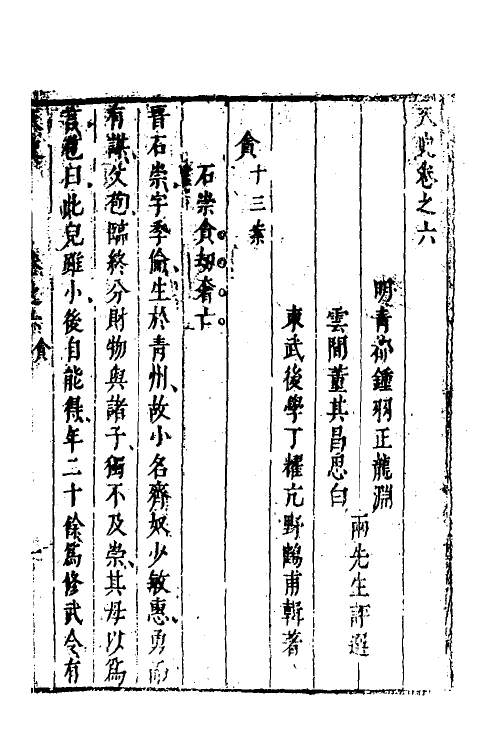 天史卷之六
明青郡鍾羽正龍淵
雲間董其昌思白
兩先生評選
東武後學丁耀亢野鶴甫輯著
貪十三案
石崇貪劫奢亡
晉石崇字季倫生於青州故小名齊奴少敏惠勇而
有謀父苞臨終分財物與諸子獨不及崇其母以爲
言苞曰此兒雖小後自能得年二十餘爲修武令有
貪